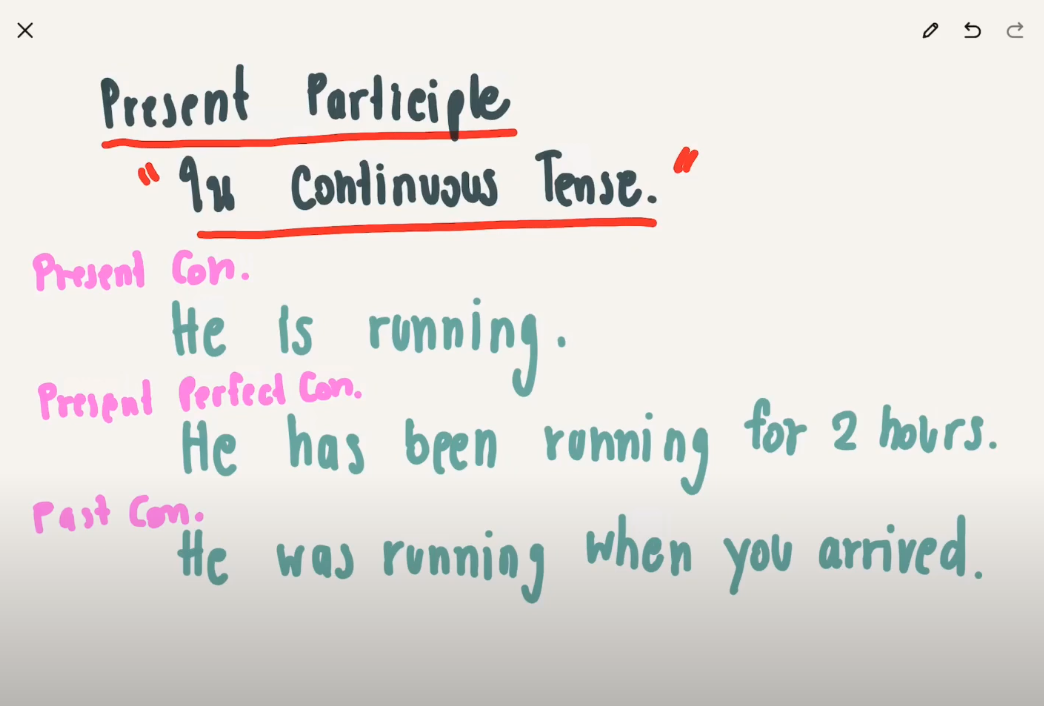 Present Participle
"ใน Continuous Tense."
Present Con.
He is running.
Present Perfect Con.
He has been running for 2 hours.
Past Con.
He was running when you arrived.